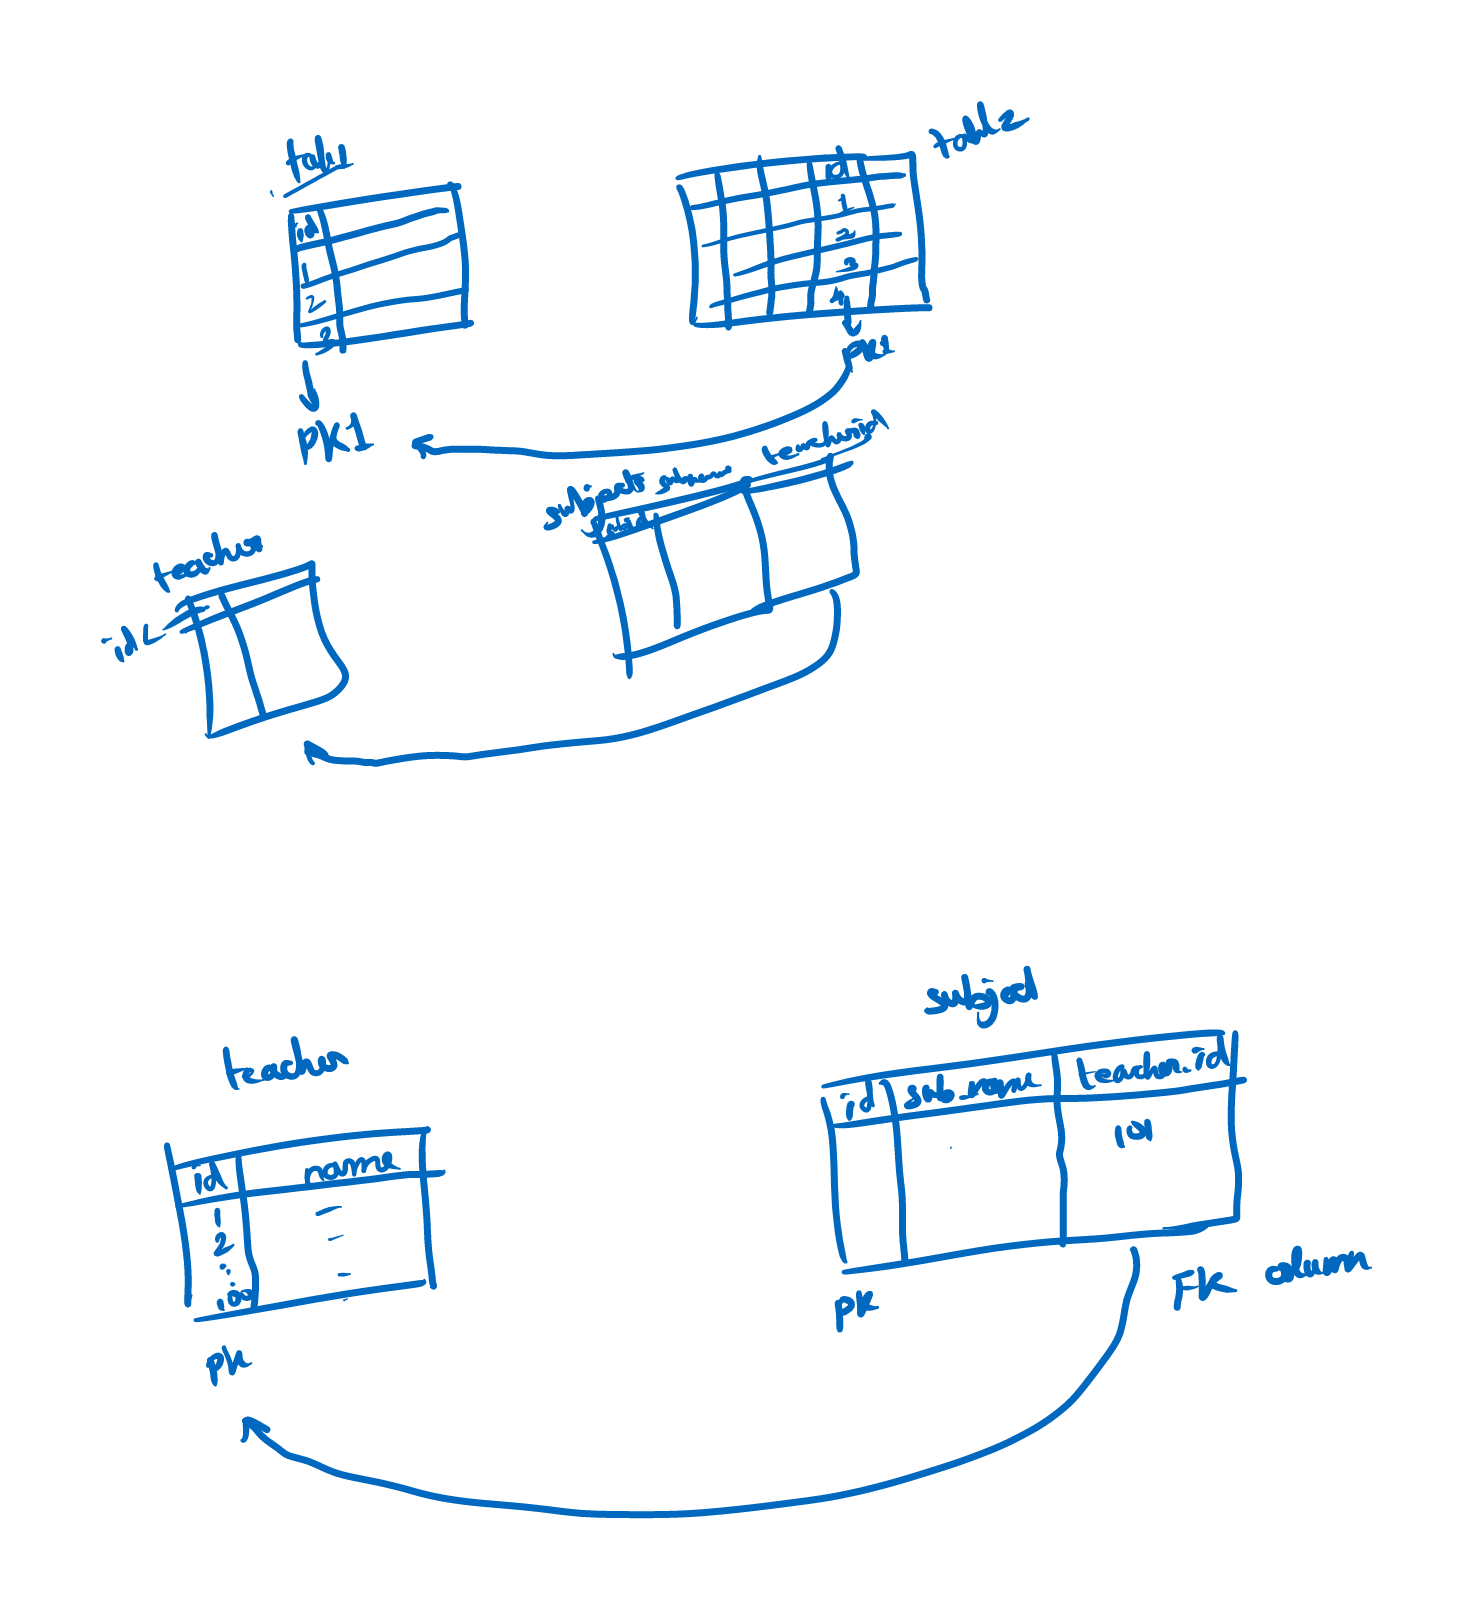 tab1
id
1
2
3
PK1
table2
id
1
2
3
4
PK1
teacher
id
subjects
subid
subname
teacherid
teacher
id name
1 -
2 -
: -
100
pk
subject
id sub_name teacher_id
101
pk
FK column